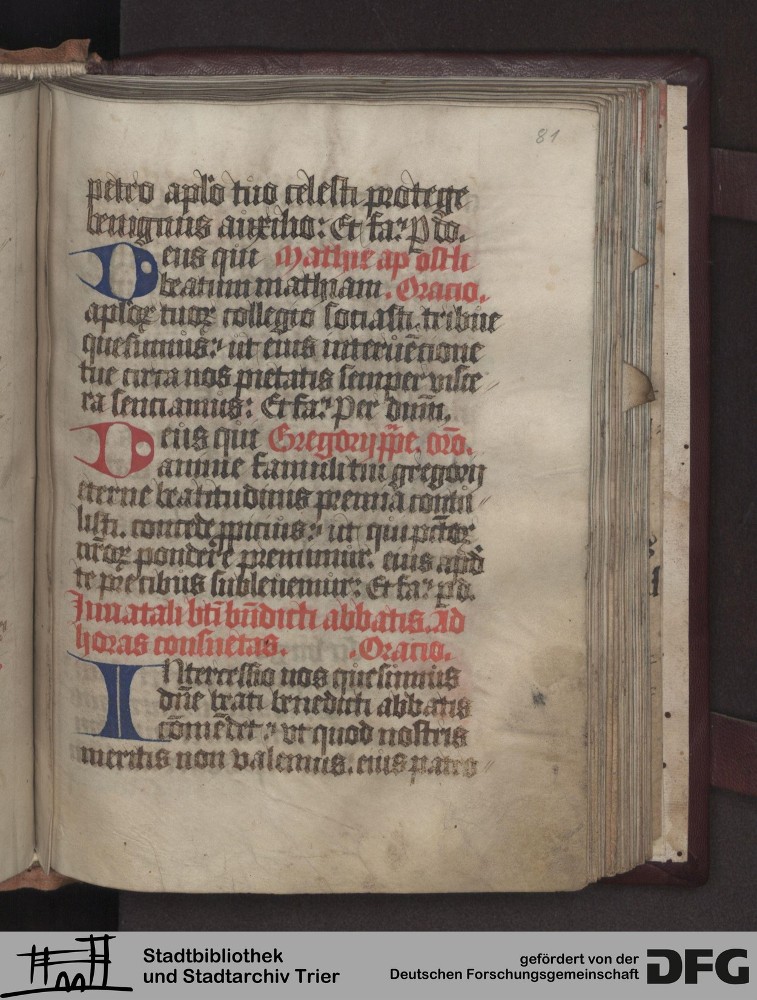 81
petro aplo tuo celesti protege
benignus auxilio: Et fa? P do.
Deus qui Mathie apostli
beatum mathiam. Oracio.
aploꝝ tuoꝝ collegio sociasti. tribue
quesumus: ut eius interuēcione
tue circa nos pietatis semper visce
ra senciamus: Et fa? Per dnm.
Deus qui Gregorij ppe. oro.
anime famuli tui gregorij
eterne beatitudinis premia contu
listi. concede ppicius: ut qui pctoꝝ
nroꝝ pondere premimur. eius apd
te precibus subleuemur: Et fa? p d.
In natali bti bndicti abbatis. Ad
horas consuetas. Oracio.
Intercessio nos quesumus
dne beati benedicti abbatis
cōmēdet: ut quod nostris
meritis non valemus. eius patro
Stadtbibliothek
und Stadtarchiv Trier
gefördert von der
Deutschen Forschungsgemeinschaft
DFG